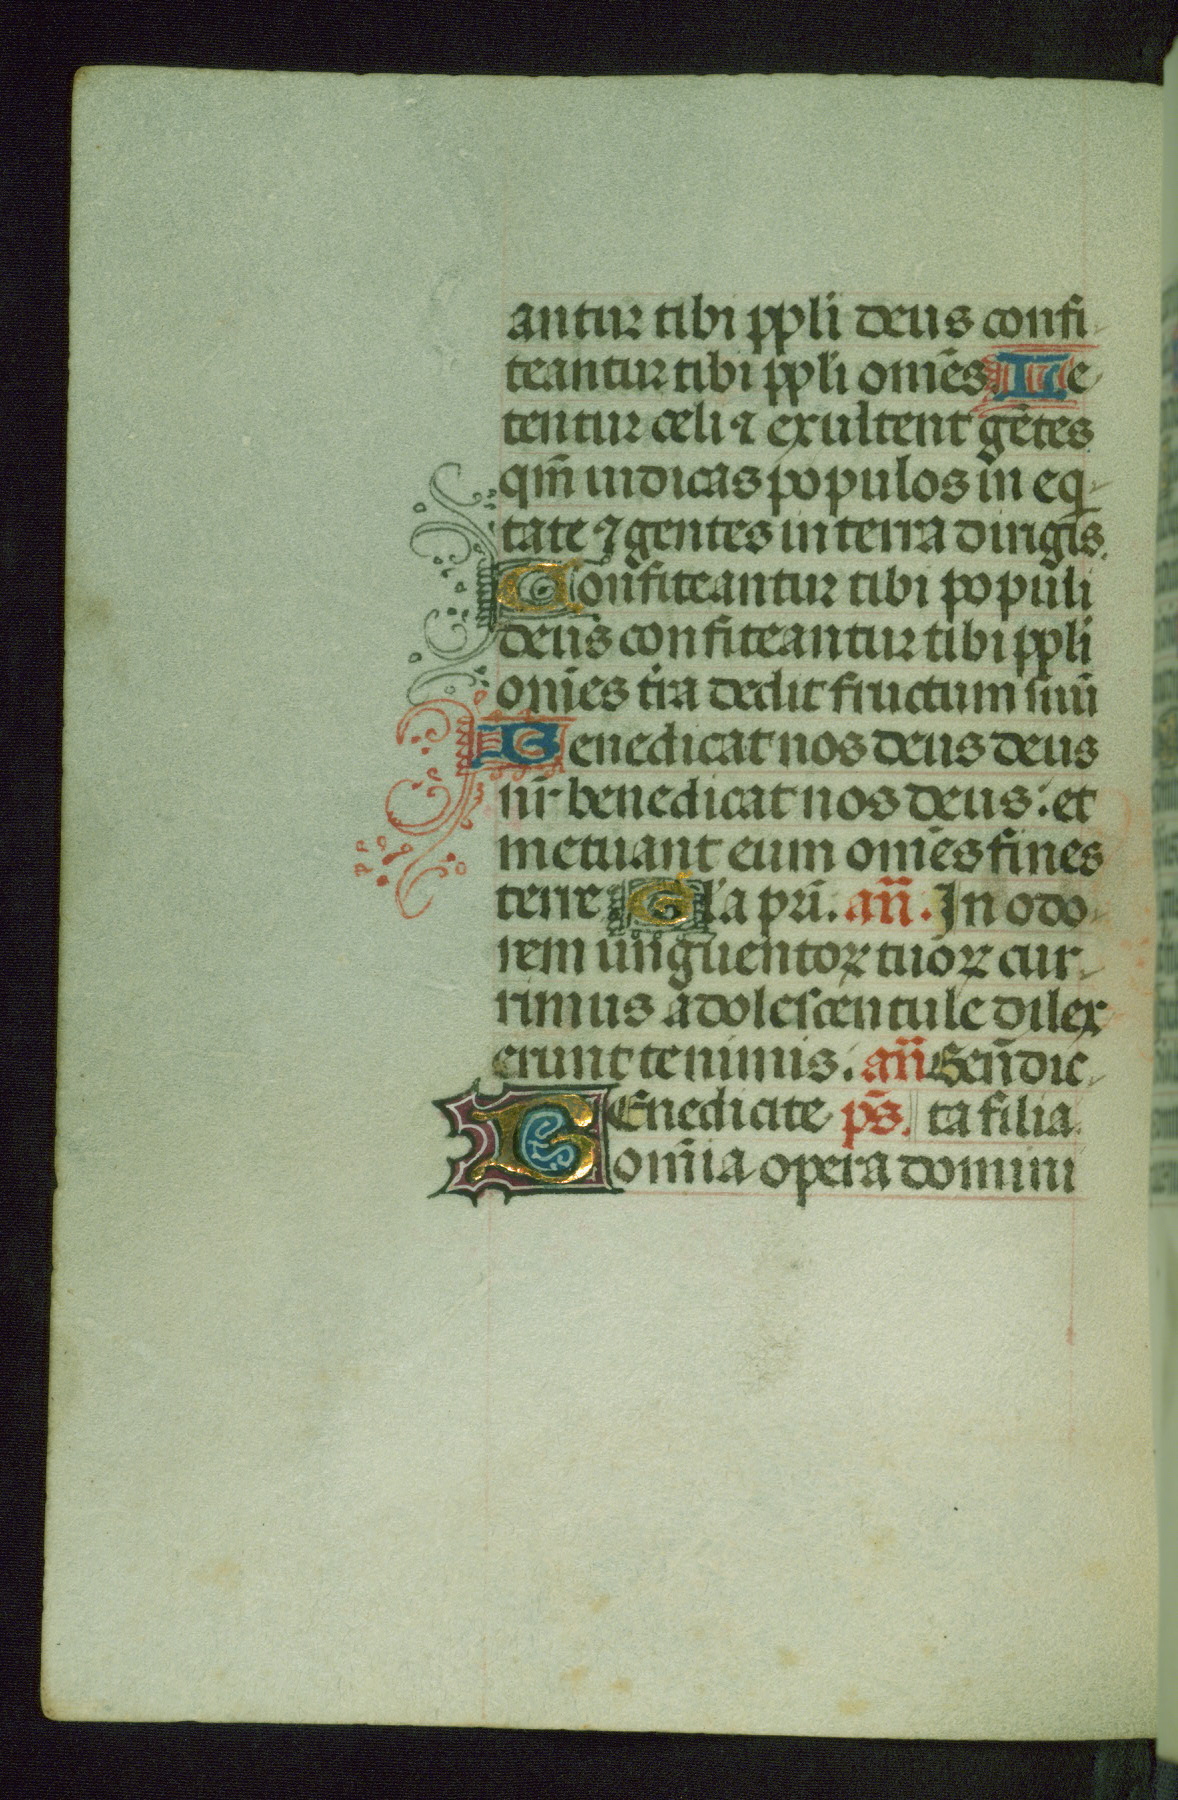 antur tibi ppli deus confi
teantur tibi ppli om̄es Le
tentur celi ⁊ exultent gētes
qm̄ iudicas populos in eq
tate ⁊ gentes in terra dirigis.
Confiteantur tibi populi
deus confiteantur tibi ppli
om̄es t'ra dedit fructum suū
Benedicat nos deus deus
nr̄ benedicat nos deus: et
metuant eum om̄es fines
terre Gl'a pri. an̄. In odo
rem unguentoꝝ tuoꝝ cur
rimus adolescentule dilex
erunt te nimis. an̄ Benedic
BEnedicite ps. ta filia.
om̄ia opera domini